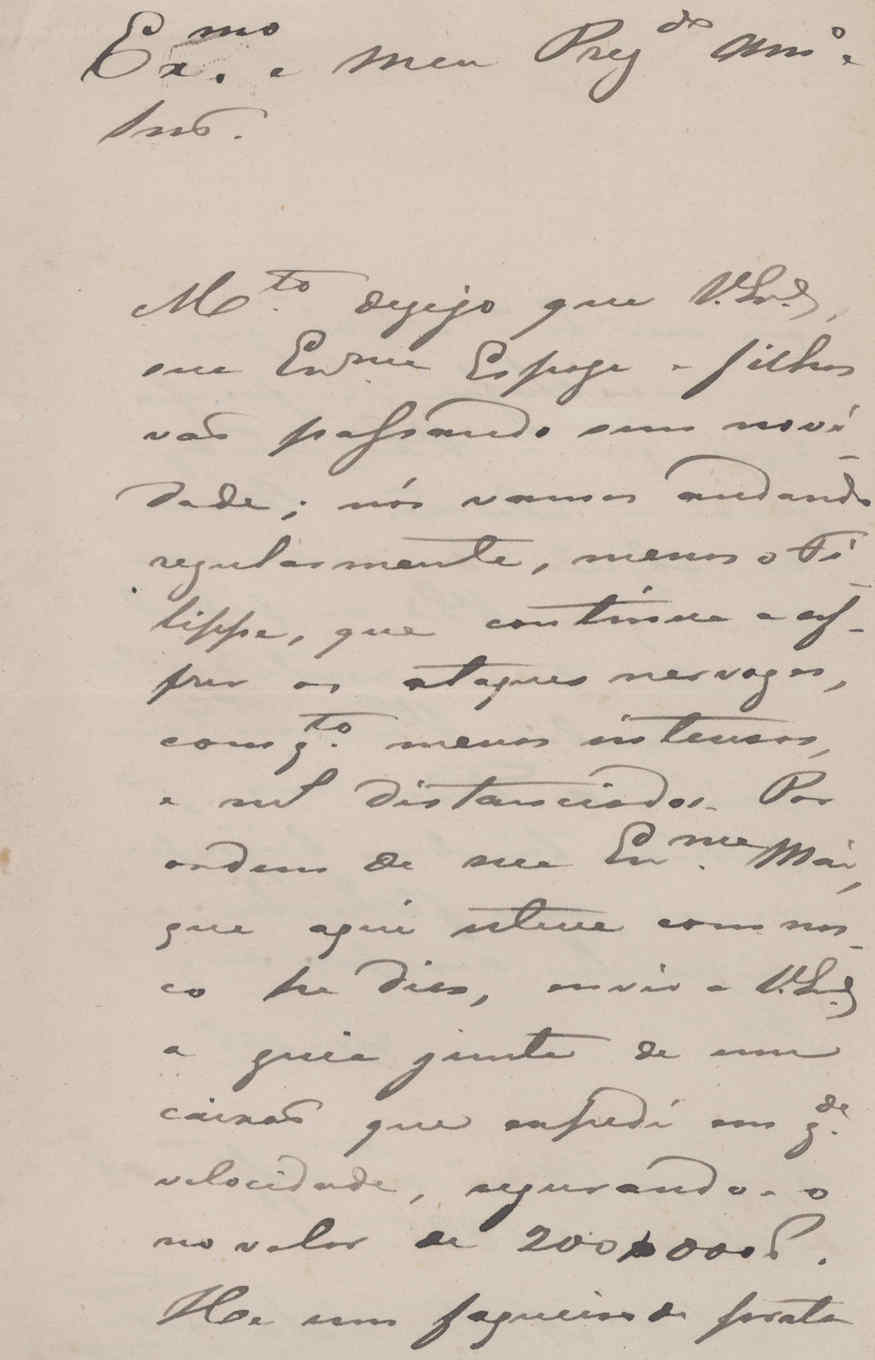 Ex.mo e meu Prez.do Am.o e
Snr.
M.to dezejo que V. S.a,
sua Ex.ma Espoza e filhos
vaõ passando sem novi-
dade; nós vamos andando
regularmente, menos o Fi-
lippe, que continua a sof-
frer os ataques nervozos,
com q.to menos intensos,
e mais distanciados. Por
ordem de sua Ex.ma Mãi,
que aqui esteve comnos-
co ha dias, envio a V. S.a
a guia junta de um
caixaõ que expedi em g.de
velocidade, segurando-o
no valor de 200$000 r.s.
He um faqueiro de prata